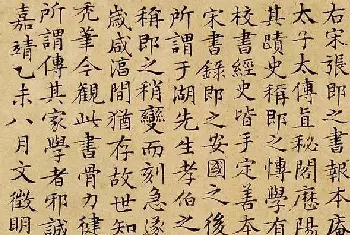 右宋張即之書報本庵
太子太傅直秘閣歷陽
其蹟史稱即之博學有
校書經史皆手定善本
宋書錄即之安國之後
所謂于湖先生孝伯之
稱即之稍變而刻急遂
歲咸淳間猶存故世知
禿筆今觀此書骨力健
所謂傳其家學者邪誠
嘉靖乙未八月文徵明